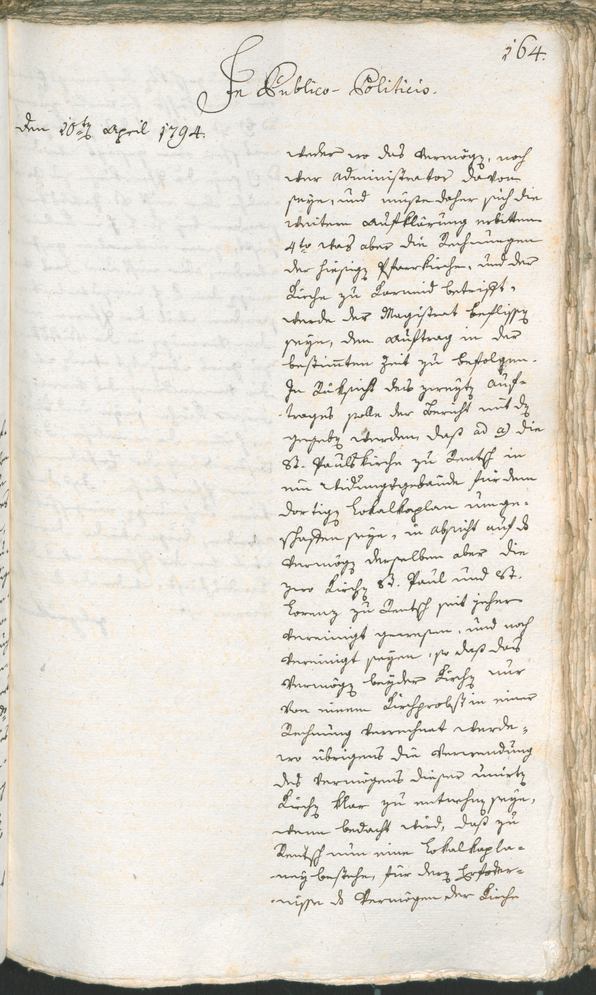 164.
In Publico-Politicis.
den 10ten April 1794.
weder wo das Vermögen, noch
wer Administrator davon
seye, und müste daher sich die
weitern Aufklärung erbitten
4to was aber die Rechnungen
der hiesigen Pfarrkirche, und der
Kirche zu Karneid betrifft,
werde der Magistrat beflissen
seyn, dem Auftrag in der
bestimten Zeit zu befolgen.
In Rüksicht des zweyten Auf-
trages solle der Bericht mit dem
gegeben werden, daß ad a) die
St. Paulskirche zu Rentsch in
ein Widungsgebäude für den
dortigen Lokalkaplan umge-
schaffen seye, in Absicht auf das
Vermögen derselben aber die
zwo Kirchen St. Paul und St.
Lorenz zu Rentsch seit jeher
vereinigt gewesen, und noch
vereinigt seyen, so daß das
Vermögen beyder Kirchen nur
von einem Kirchprobst in einer
Rechnung verrechnet werde,
wo übrigens die Verwendung
des Vermögens dieser unirten
Kirchen klar zu entnehmen seye,
wenn bedacht wird, daß zu
Rentsch nun eine Lokalkapla-
ney bestehe, für deren Erforder-
nisse das Vermögen der Kirche